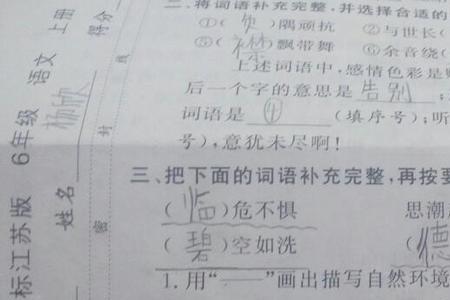 二、将词语补充完整,并选择合适的
①(负)隅顽抗 ②与世长(
⑤(襟)飘带舞 ⑥余音绕(
上述词语中,感情色彩是
后一个字的意思是告别;
词语是④(填序号);听
号),意犹未尽啊!
三、把下面的词语补充完整,再按要
(临)危不惧 思潮
(碧)空如洗 (德
1.用“——”画出描写自然环境
标江苏版 6年级 语文 上册
姓名 杨欣 得分
密 封 线